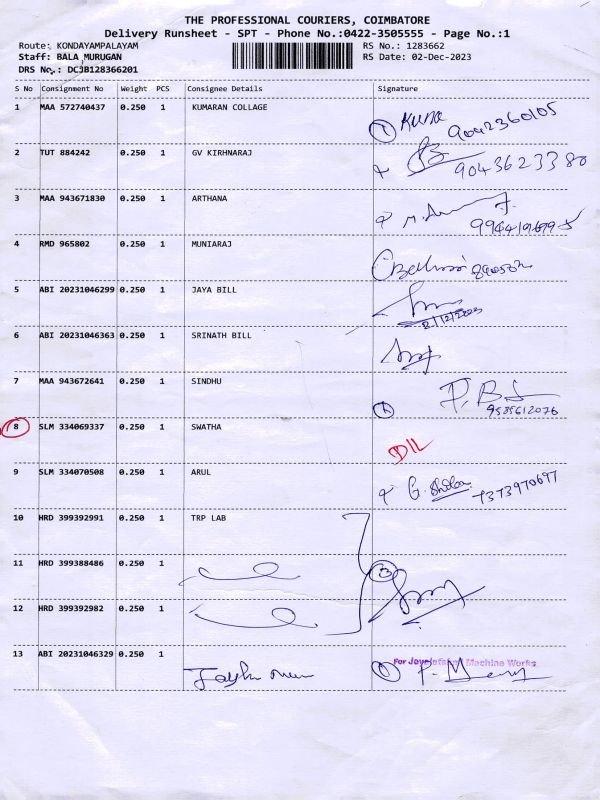 THE PROFESSIONAL COURIERS, COIMBATORE
Delivery Runsheet - SPT - Phone No.:0422-3505555 - Page No.:1
Route: KONDAYAMPALAYAM RS No.: 1283662
Staff: BALA MURUGAN RS Date: 02-Dec-2023
DRS No.: DCJB128366201
S No Consignment No Weight PCS Consignee Details Signature
1 MAA 572740437 0.250 1 KUMARAN COLLAGE
9042360105
2 TUT 884242 0.250 1 GV KIRHNARAJ
9043623380
3 MAA 943671830 0.250 1 ARTHANA
4 RMD 965802 0.250 1 MUNIARAJ
5 ABI 20231046299 0.250 1 JAYA BILL
2/12/2023
6 ABI 20231046363 0.250 1 SRINATH BILL
7 MAA 943672641 0.250 1 SINDHU
9585612076
8 SLM 334069337 0.250 1 SWATHA
D/L
9 SLM 334070508 0.250 1 ARUL
G. Shiba 7373970697
10 HRD 399392991 0.250 1 TRP LAB
11 HRD 399388486 0.250 1
3
12 HRD 399392982 0.250 1
13 ABI 20231046329 0.250 1
For Machine Works